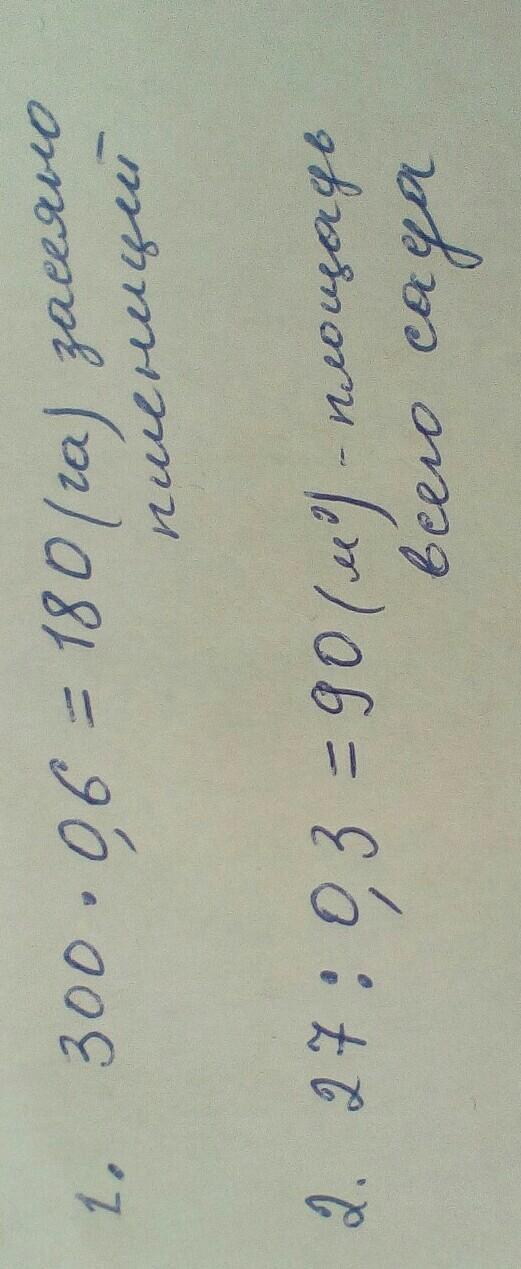 1. 300 · 0,6 = 180 (га) засеяно
пшеницей
2. 27 : 0,3 = 90 (м²) - площадь
всего сада